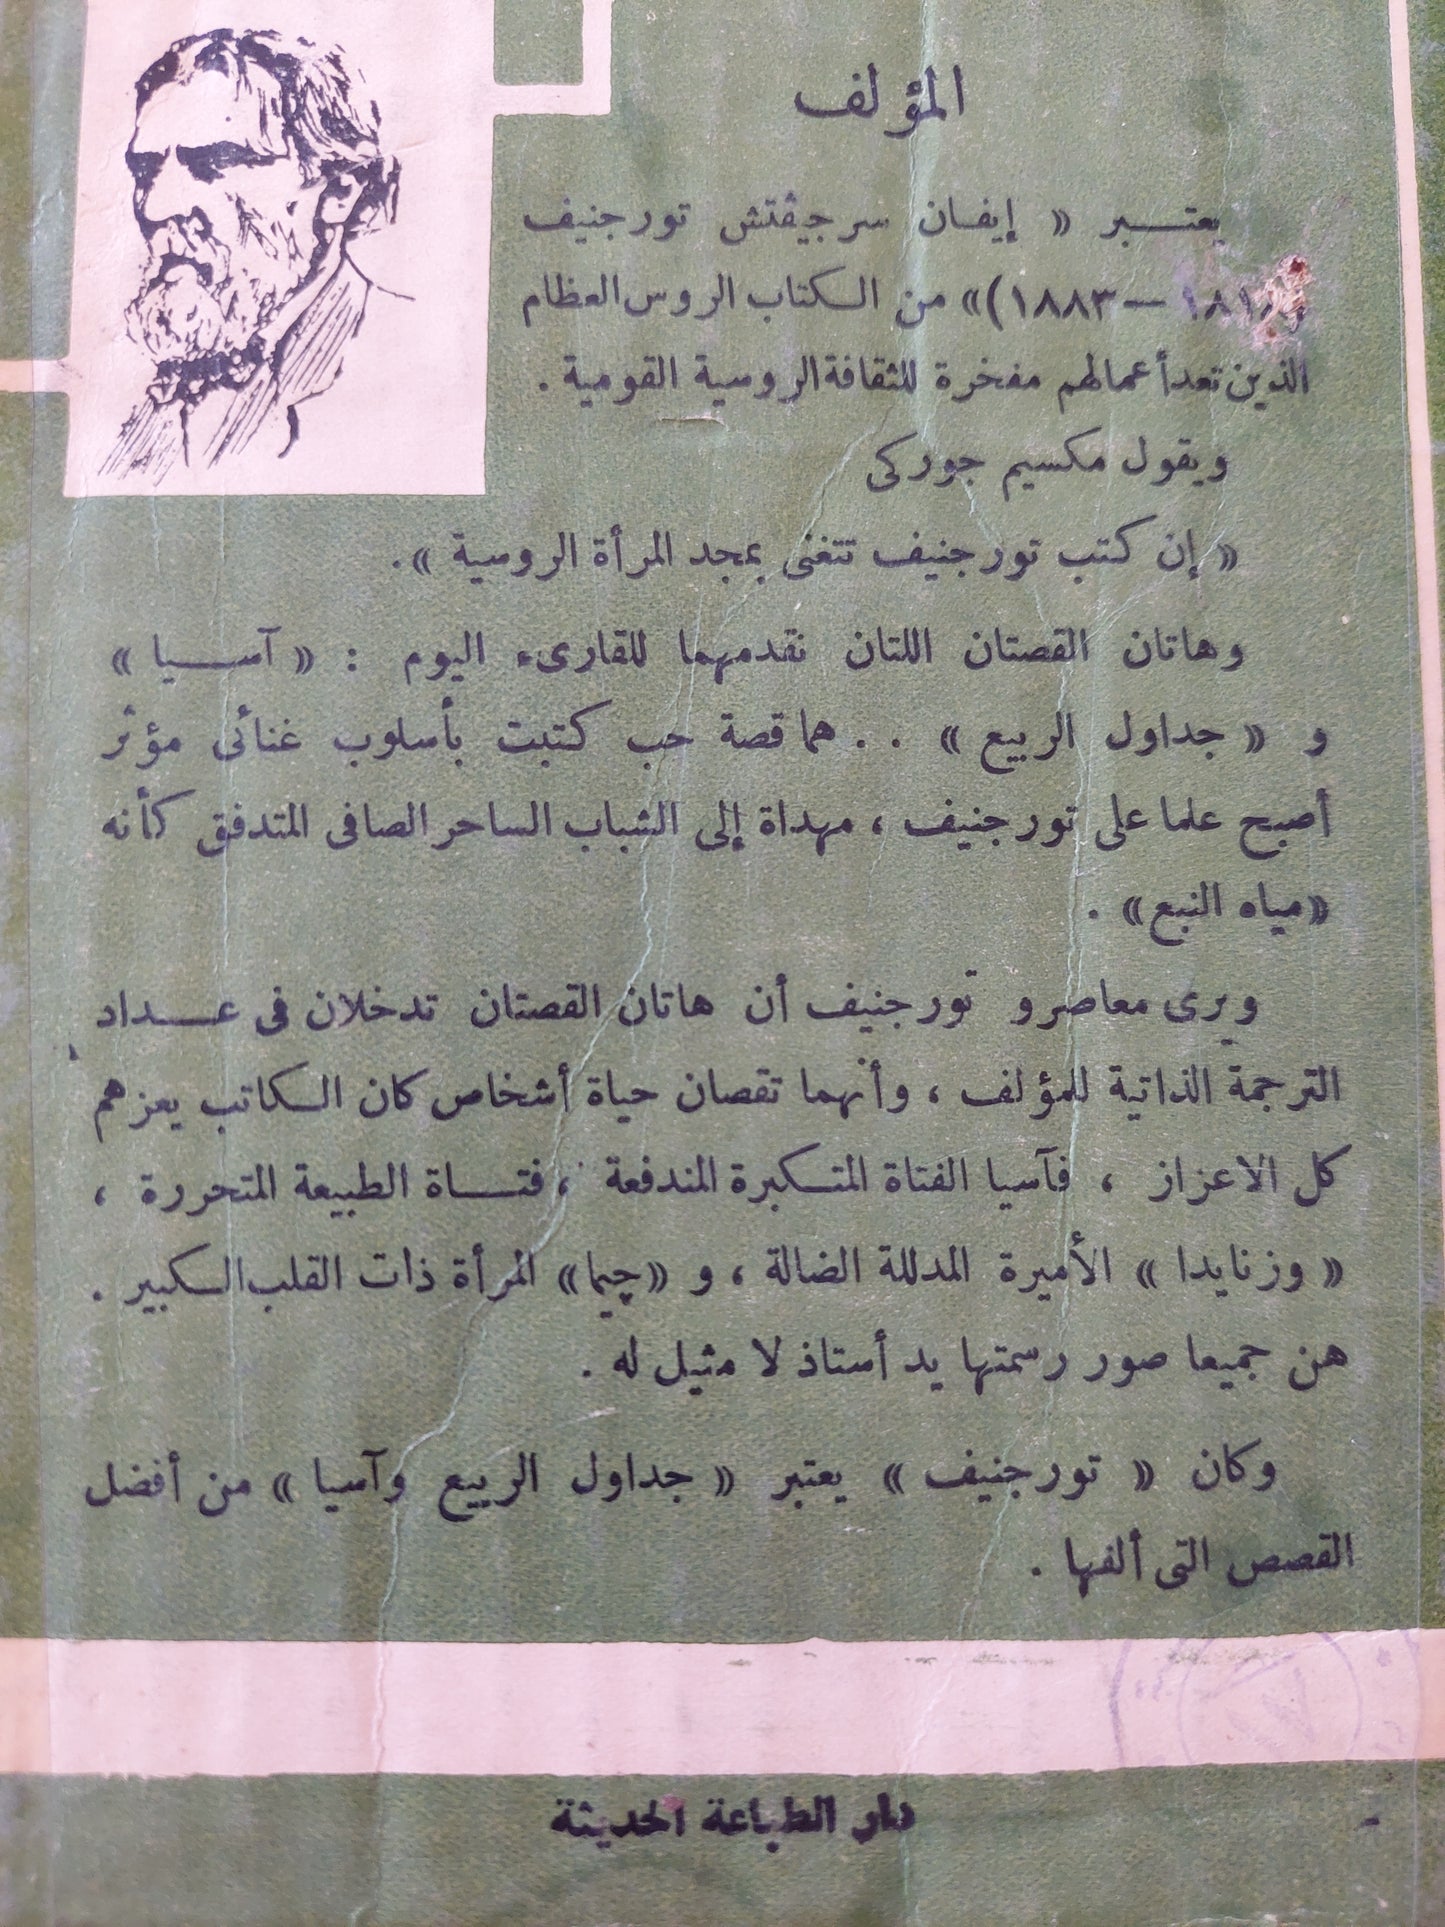 المؤلف
يعتبر « إيفان سرجيڤتش تورجنيف
١٨١٨ – ١٨٨٣)» من الكتاب الروس العظام
الذين تعد أعمالهم مفخرة للثقافة الروسية القومية .
ويقول مكسيم جوركى
« إن كتب تورجنيف تتغنى بمجد المرأة الروسية » .
وهاتان القصتان اللتان نقدمهما للقارىء اليوم : « آسيا »
و « جداول الربيع » . . هما قصة حب كتبت بأسلوب غنائى مؤثر
أصبح علما على تورجنيف ، مهداة إلى الشباب الساحر الصافى المتدفق كأنه
«مياه النبع» .
ويرى معاصرو تورجنيف أن هاتان القصتان تدخلان فى عداد
الترجمة الذاتية للمؤلف ، وأنهما تقصان حياة أشخاص كان الكاتب يعزهم
كل الاعزاز ، فآسيا الفتاة المتكبرة المندفعة ، فتاة الطبيعة المتحررة ،
« وزنايدا » الأميرة المدللة الضالة ، و «چيما» المرأة ذات القلب الكبير .
هن جميعا صور رسمتها يد أستاذ لا مثيل له .
وكان « تورجنيف » يعتبر « جداول الربيع وآسيا » من أفضل
القصص التى ألفها .
دار الطباعة الحديثة